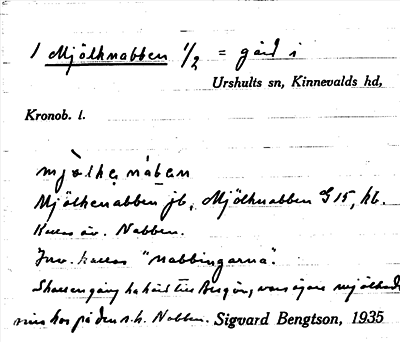 1 Mjölknabben 1/2 = gård i
Urshults sn, Kinnevalds hd,
Kronob. l.
mjòlkenáben
Mjölkenabben jb, Mjölknabben G15, kb.
Kallas äv. Nabben.
Inv. kallas "nabbingarna".
Skall en gång ha hört till Bergön, vars ägare mjölkade
sina kor på den s.k. Nabben. Sigvard Bengtson, 1935